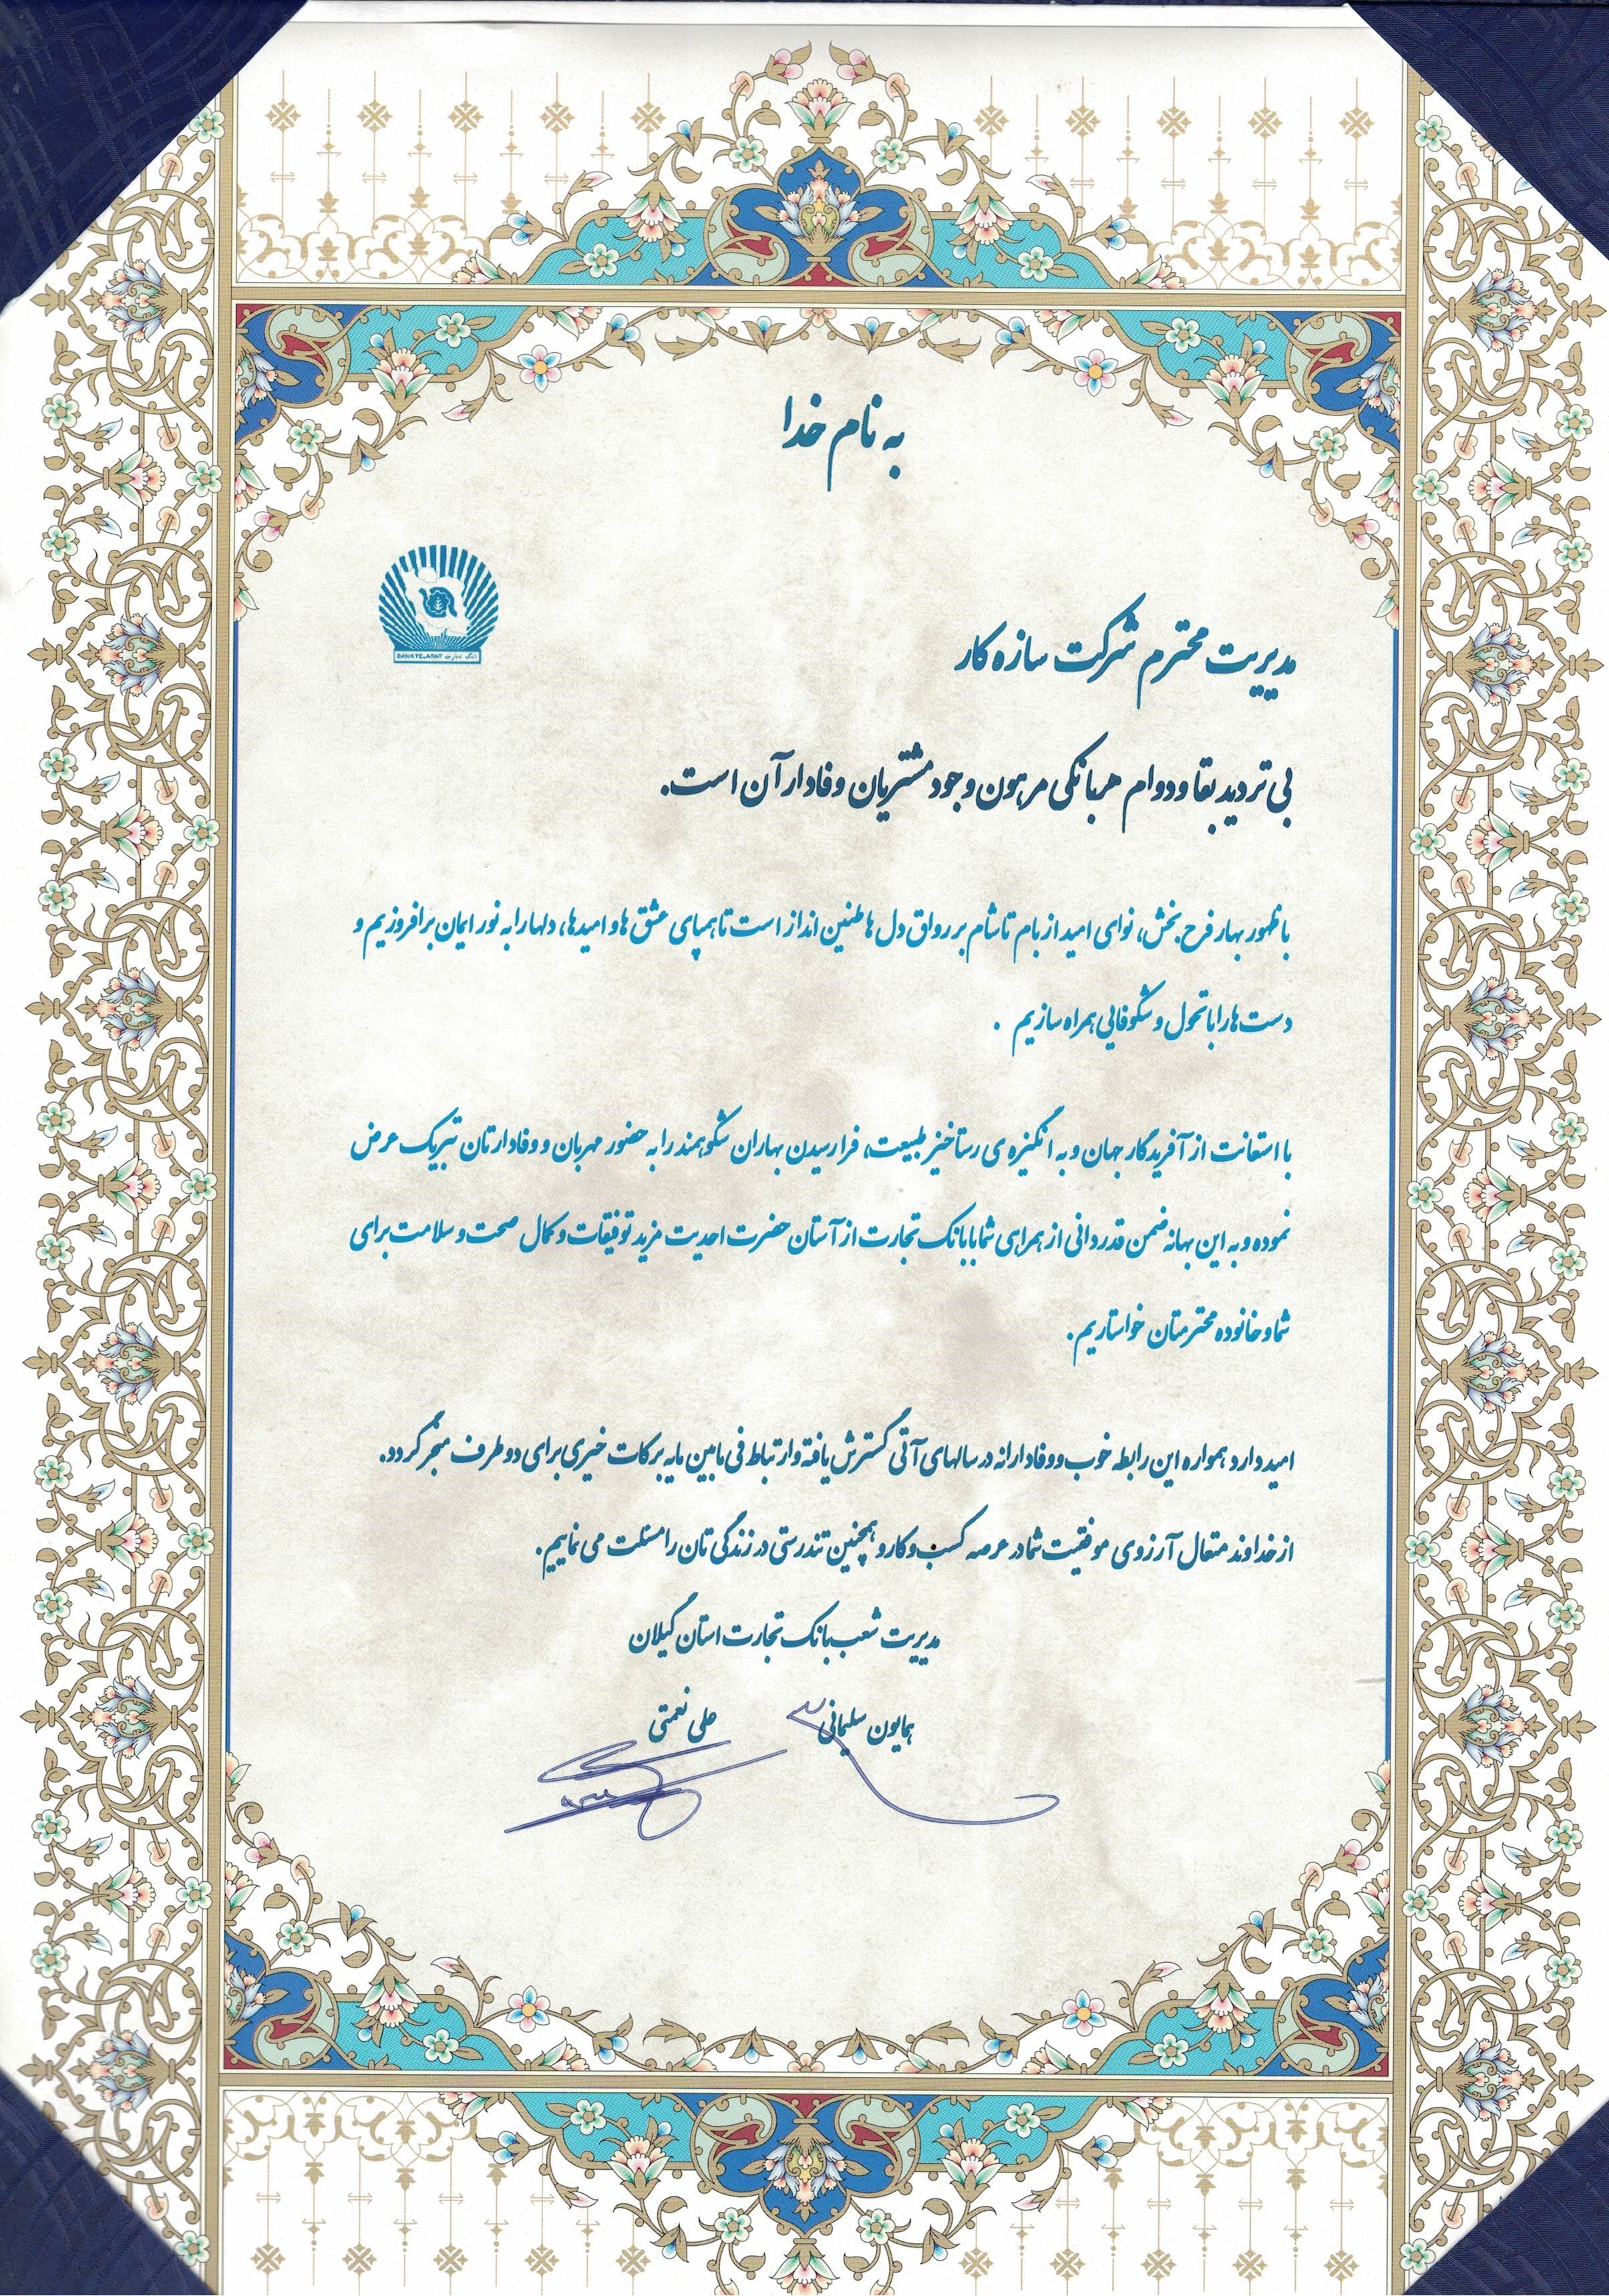 به نام خدا
BANK TEJARAT بانک تجارت
مدیریت محترم شرکت سازه کار
بی تردید بقا و دوام هر بانکی مرهون وجود مشتریان وفادار آن است.
با ظهور بهار فرح بخش، نوای امید از بام تا شام بر رواق دل ها طنین انداز است تا همپای عشق ها و امیدها، دلها را به نور ایمان برافروزیم و
دست ها را با تحول و شکوفایی همراه سازیم .
با استعانت از آفریدگار جهان و به انگیزه ی رستاخیز طبیعت، فرا رسیدن بهاران شکوهمند را به حضور مهربان و وفادارتان تبریک عرض
نموده و به این بهانه ضمن قدردانی از همراهی شما با بانک تجارت از آستان حضرت احدیت مزید توفیقات و کمال صحت و سلامت برای
شما و خانواده محترمتان خواستاریم.
امید دارد همواره این رابطه خوب و وفادارانه در سالهای آتی گسترش یافته و ارتباط فی مابین مایه برکات خیری برای دو طرف منجر گردد.
از خداوند متعال آرزوی موفقیت شما در عرصه کسب و کار و همچنین تندرستی در زندگی تان را مسئلت می نماییم.
مدیریت شعب بانک تجارت استان گیلان
همایون سلیمانی علی نعمتی